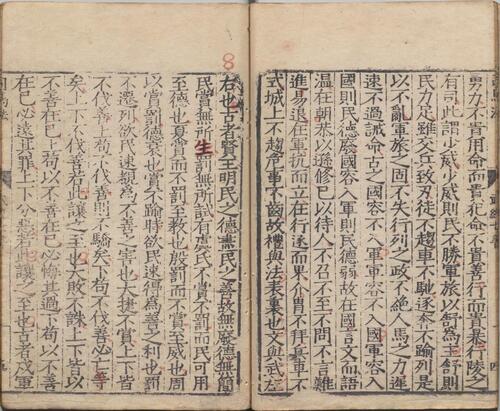 勇力不貴用命而貴犯命不貴善行而貴暴行陵之
有司此謂少威少威則民不勝軍旅以舒爲主舒則
民力足雖交兵致刃徒不趨車不馳逐奔不踰列是
以不亂軍旅之固不失行列之政不絕人馬之力遲
速不過誡命古之國容不入軍軍容不入國軍容入
國則民德廢國容入軍則民德弱故在國言文而語
温在朝恭以遜修己以待人不召不至不問不言難
進易退在軍抗而立在行遂而果介冑不拜兵車不
式城上不趨危事不齒故禮與法表裏也文與武左
右也古者賢王明民之德盡民之善故無廢德無簡
民賞無所生罰無所試有虞氏不賞不罰而民可用
至德也夏賞而不罰至教也殷罰而不賞至威也周
以賞罰德衰也賞不踰時欲民速得爲善之利也罰
不遷列欲民速覩爲不善之害也大捷不賞上下皆
不伐善上苟不伐善則不驕矣下苟不伐善必亡等
矣上下不伐善若此讓之至也大敗不誅上下皆以
不善在己上苟以不善在己必悔其過下苟以不善
在己必遠其罪上下分惡若此讓之至也古者戍軍
8